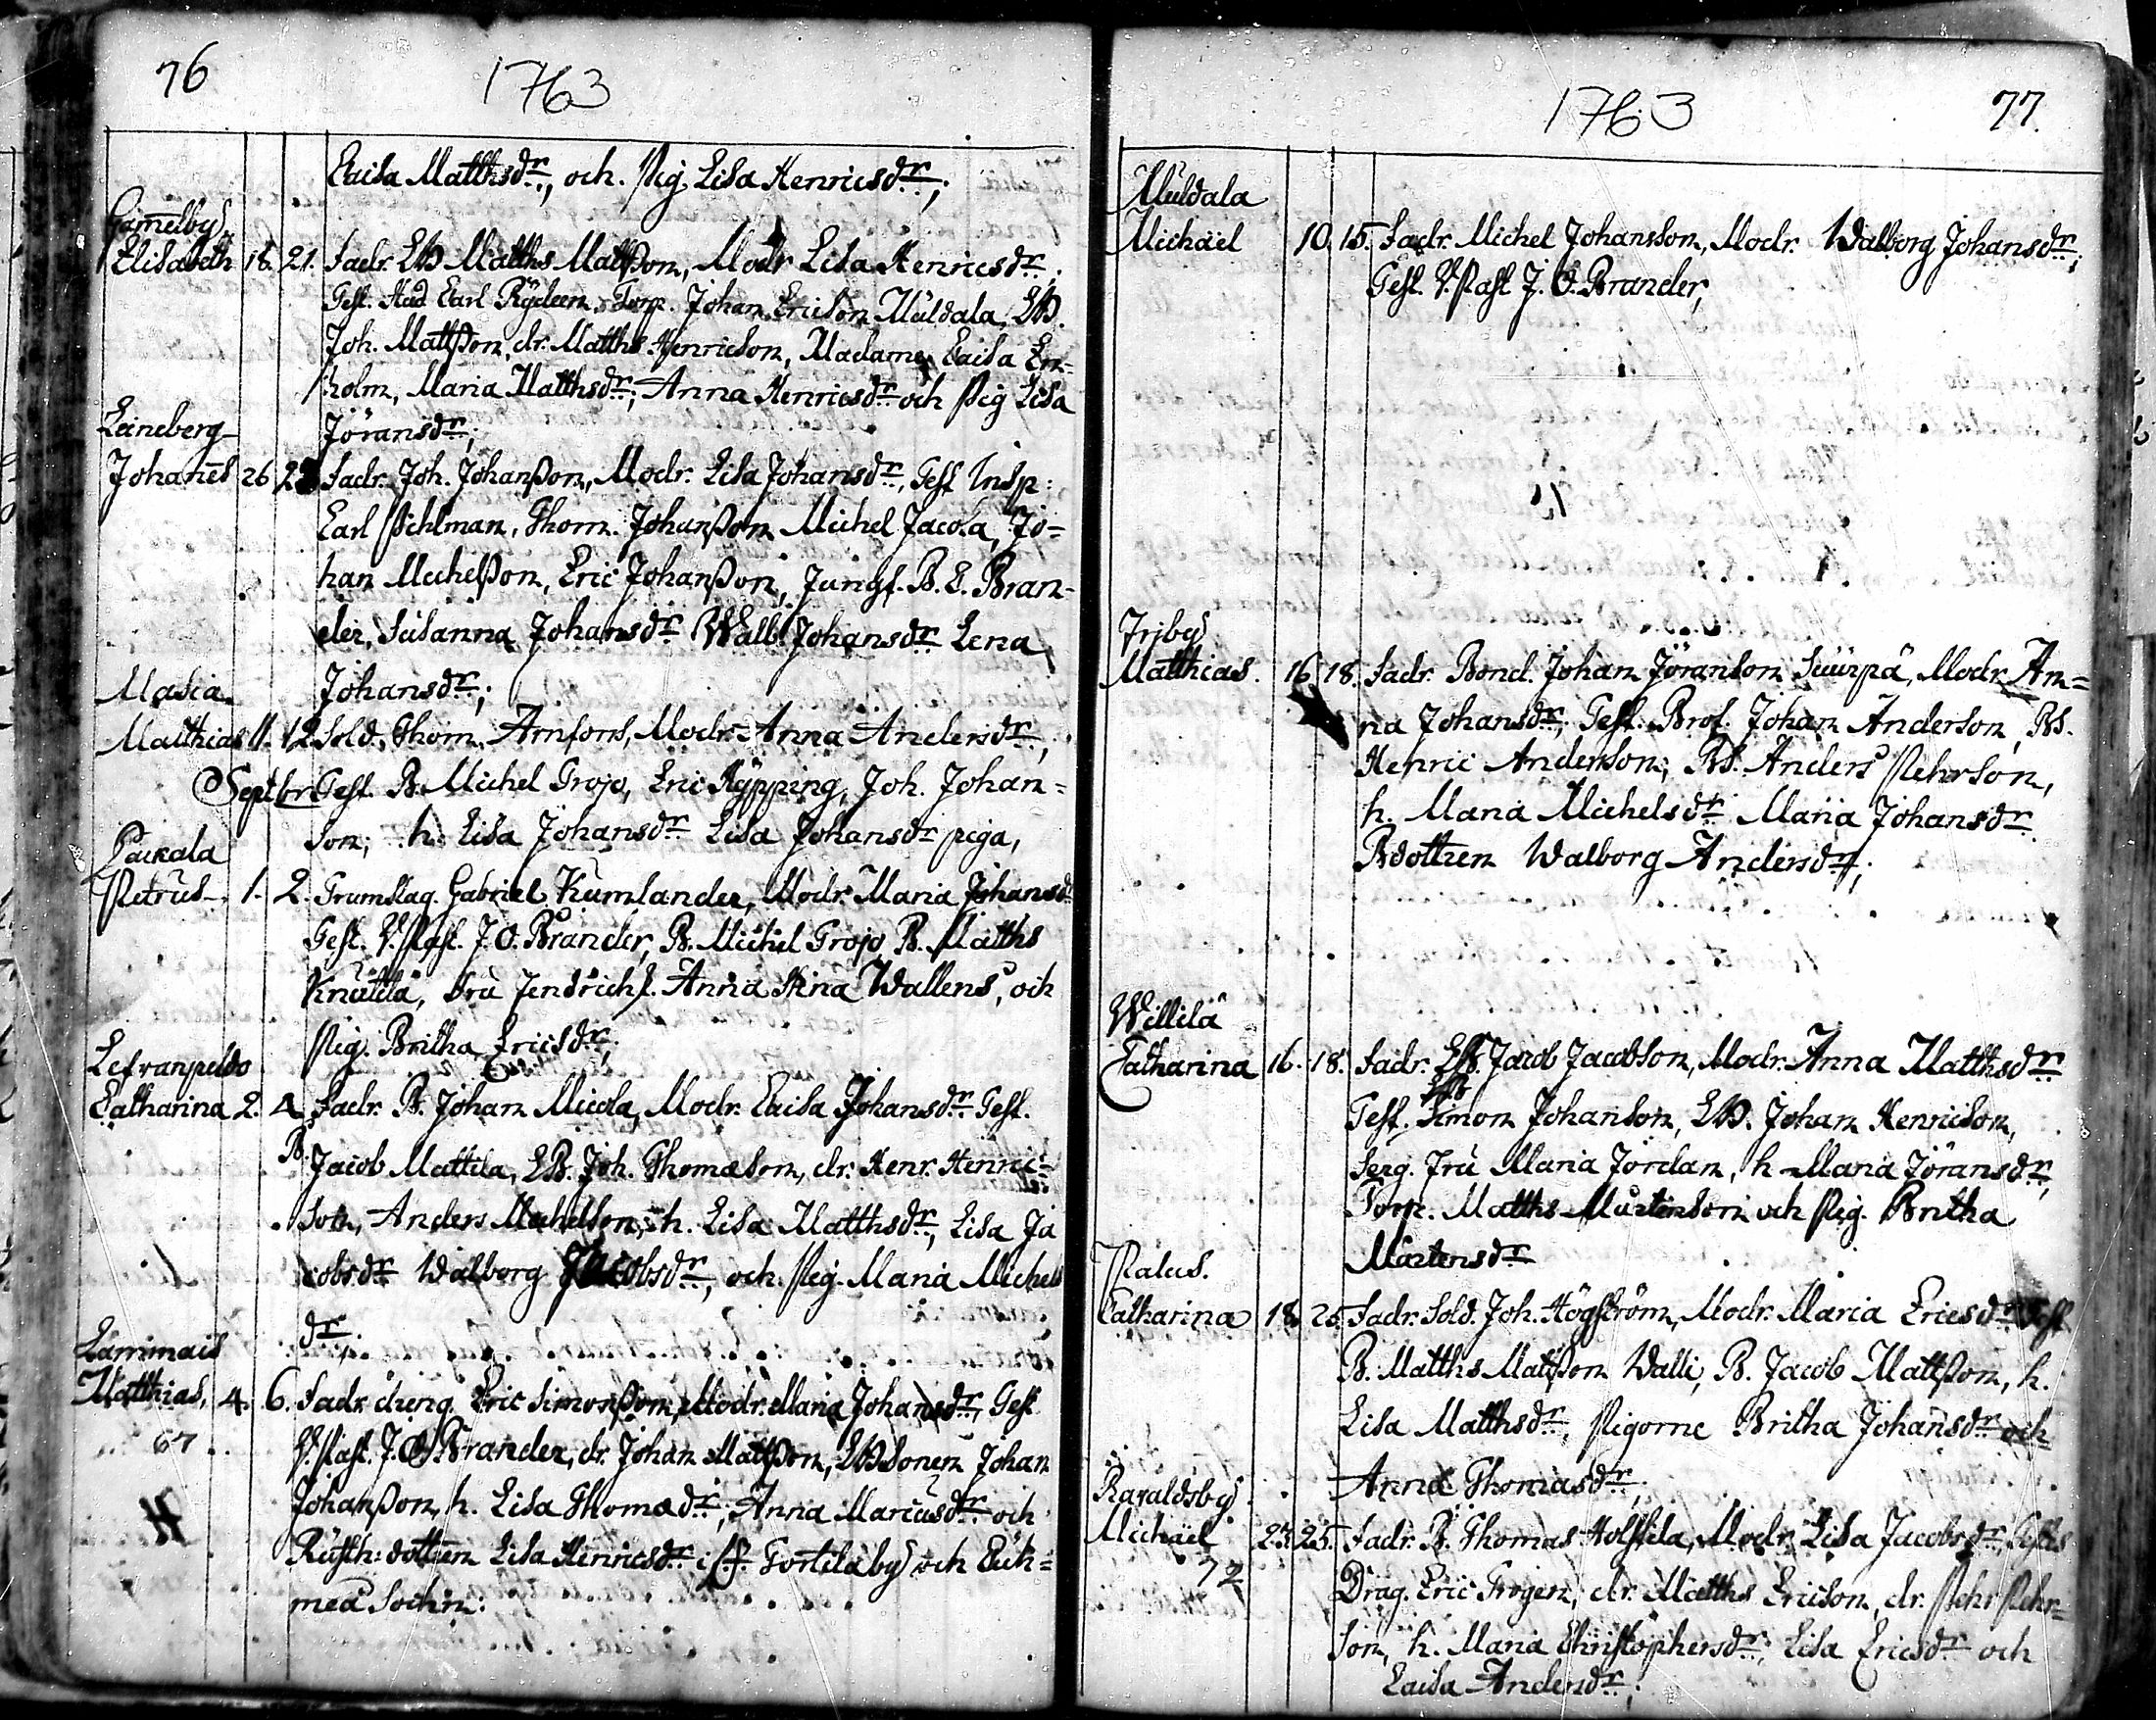 76
1763
Caisa Matthsdr, och Pig. Lisa Henricsdr;
Gamelby
Elisabeth 18. 21. Fadr. LB Matths Mattsson, Modr Lisa Henricsdr;
Test. Stud Carl Rydeen, Torp. Johan Ericson Muldala, LB.
Joh. Mattsson, dr. Matths Henricson, Madame Caisa En-
holm, Maria Matthsdr; Anna Henricsdr och Pig Lisa
Jöransdr;
Leineberg
Johanes 26 28 Fadr. Joh. Johansson, Modr. Lisa Johansdr, Test Insp:
Carl Pihlman, Thom. Johansson Michel Jacola, Jo-
han Michelsson, Eric Johansson, Jungf. B. C. Bran-
der, Susanna Johansdr Walb. Johansdr Lena
Johansdr;
Masia
Matthias 11. 12 Sold. Thom. Arnfors, Modr Anna Andersdr;
Septbr Test. B. Michel Trojo, Eric Kypping, Joh. Johan-
son; h. Lisa Johansdr Lisa Johansdr piga,
Pairala
Petrus 1. 2. Trumslag. Gabriel Kumlander, Modr. Maria Johansdr
Test. V. Past. J. O. Brander, B. Michel Trojo B. Matths
Knutila, Fru Jendrichs. Anna Stina Wallens, och
Pig. Britha Ericsdr;
Lefvanpeldo
Catharina 2. 4 Fadr. B. Johan Micola, Modr. Caisa Johansdr Test.
B. Jacob Mattila, LB. Joh. Thomæson, dr. Henr. Henric-
son, Anders Michelson, h. Lisa Matthsdr, Lisa Ja
cobsdr Walborg Jacobsdr, och Pig. Maria Michels
dr.
Lammais
Matthias, 4. 6. Fadr. dreng. Eric Simonsson, Modr. Maria Johansdr, Test
67 V. Past. J. O. Brander, dr. Johan Mattsson, LBsonen Johan
Johansson, h. Lisa Thomædr; Anna Marcusdr och
Rusth: dottren Lisa Henricsdr i Torttilaby och
mea Sochn:
1763
77.
Muldala
Michael 10. 15. Fadr. Michel Johansson, Modr. Walborg Johansdr;
Test. V. Past J. O. Brander,
Irjby
Matthias. 16 18. Fadr. Bond. Johan Jöranson Suurpä, Modr. An-
na Johansdr; Test. Brof. Johan Anderson, BS.
Henric Anderson; BS. Anders Pehrson,
h. Maria Michelsdr Maria Johansdr
Bdottren Walborg Andersdr;
Willilä
Catharina 16. 18. Fadr. LB. Jacob Jacobson, Modr. Anna Matthsdr
LB
Test. Simon Johanson, LB. Johan Henricson,
Serg. Fru Maria Jordan, h Maria Jöransdr,
Torp. Matths Mårtenson och Pig. Britha
Mårtensdr
Palus.
Catharina 18. 25. Fadr. Sold. Joh. Högström, Modr. Maria Ericsdr Test
B. Matths Mattsson Walli, B. Jacob Mattsson, h.
Lisa Matthsdr, Pigorne Britha Johansdr och
Anna Thomasdr;
Haraldsby
Michael 23. 25. Fadr. B. Thomas Hollsila, Modr. Lisa Jacobsdr, Testes
72 Drag. Eric Frogen, dr. Matths Ericson, dr. Pehr Pehr-
son, h. Maria Christophersdr; Lisa Ericsdr och
Caisa Andersdr;